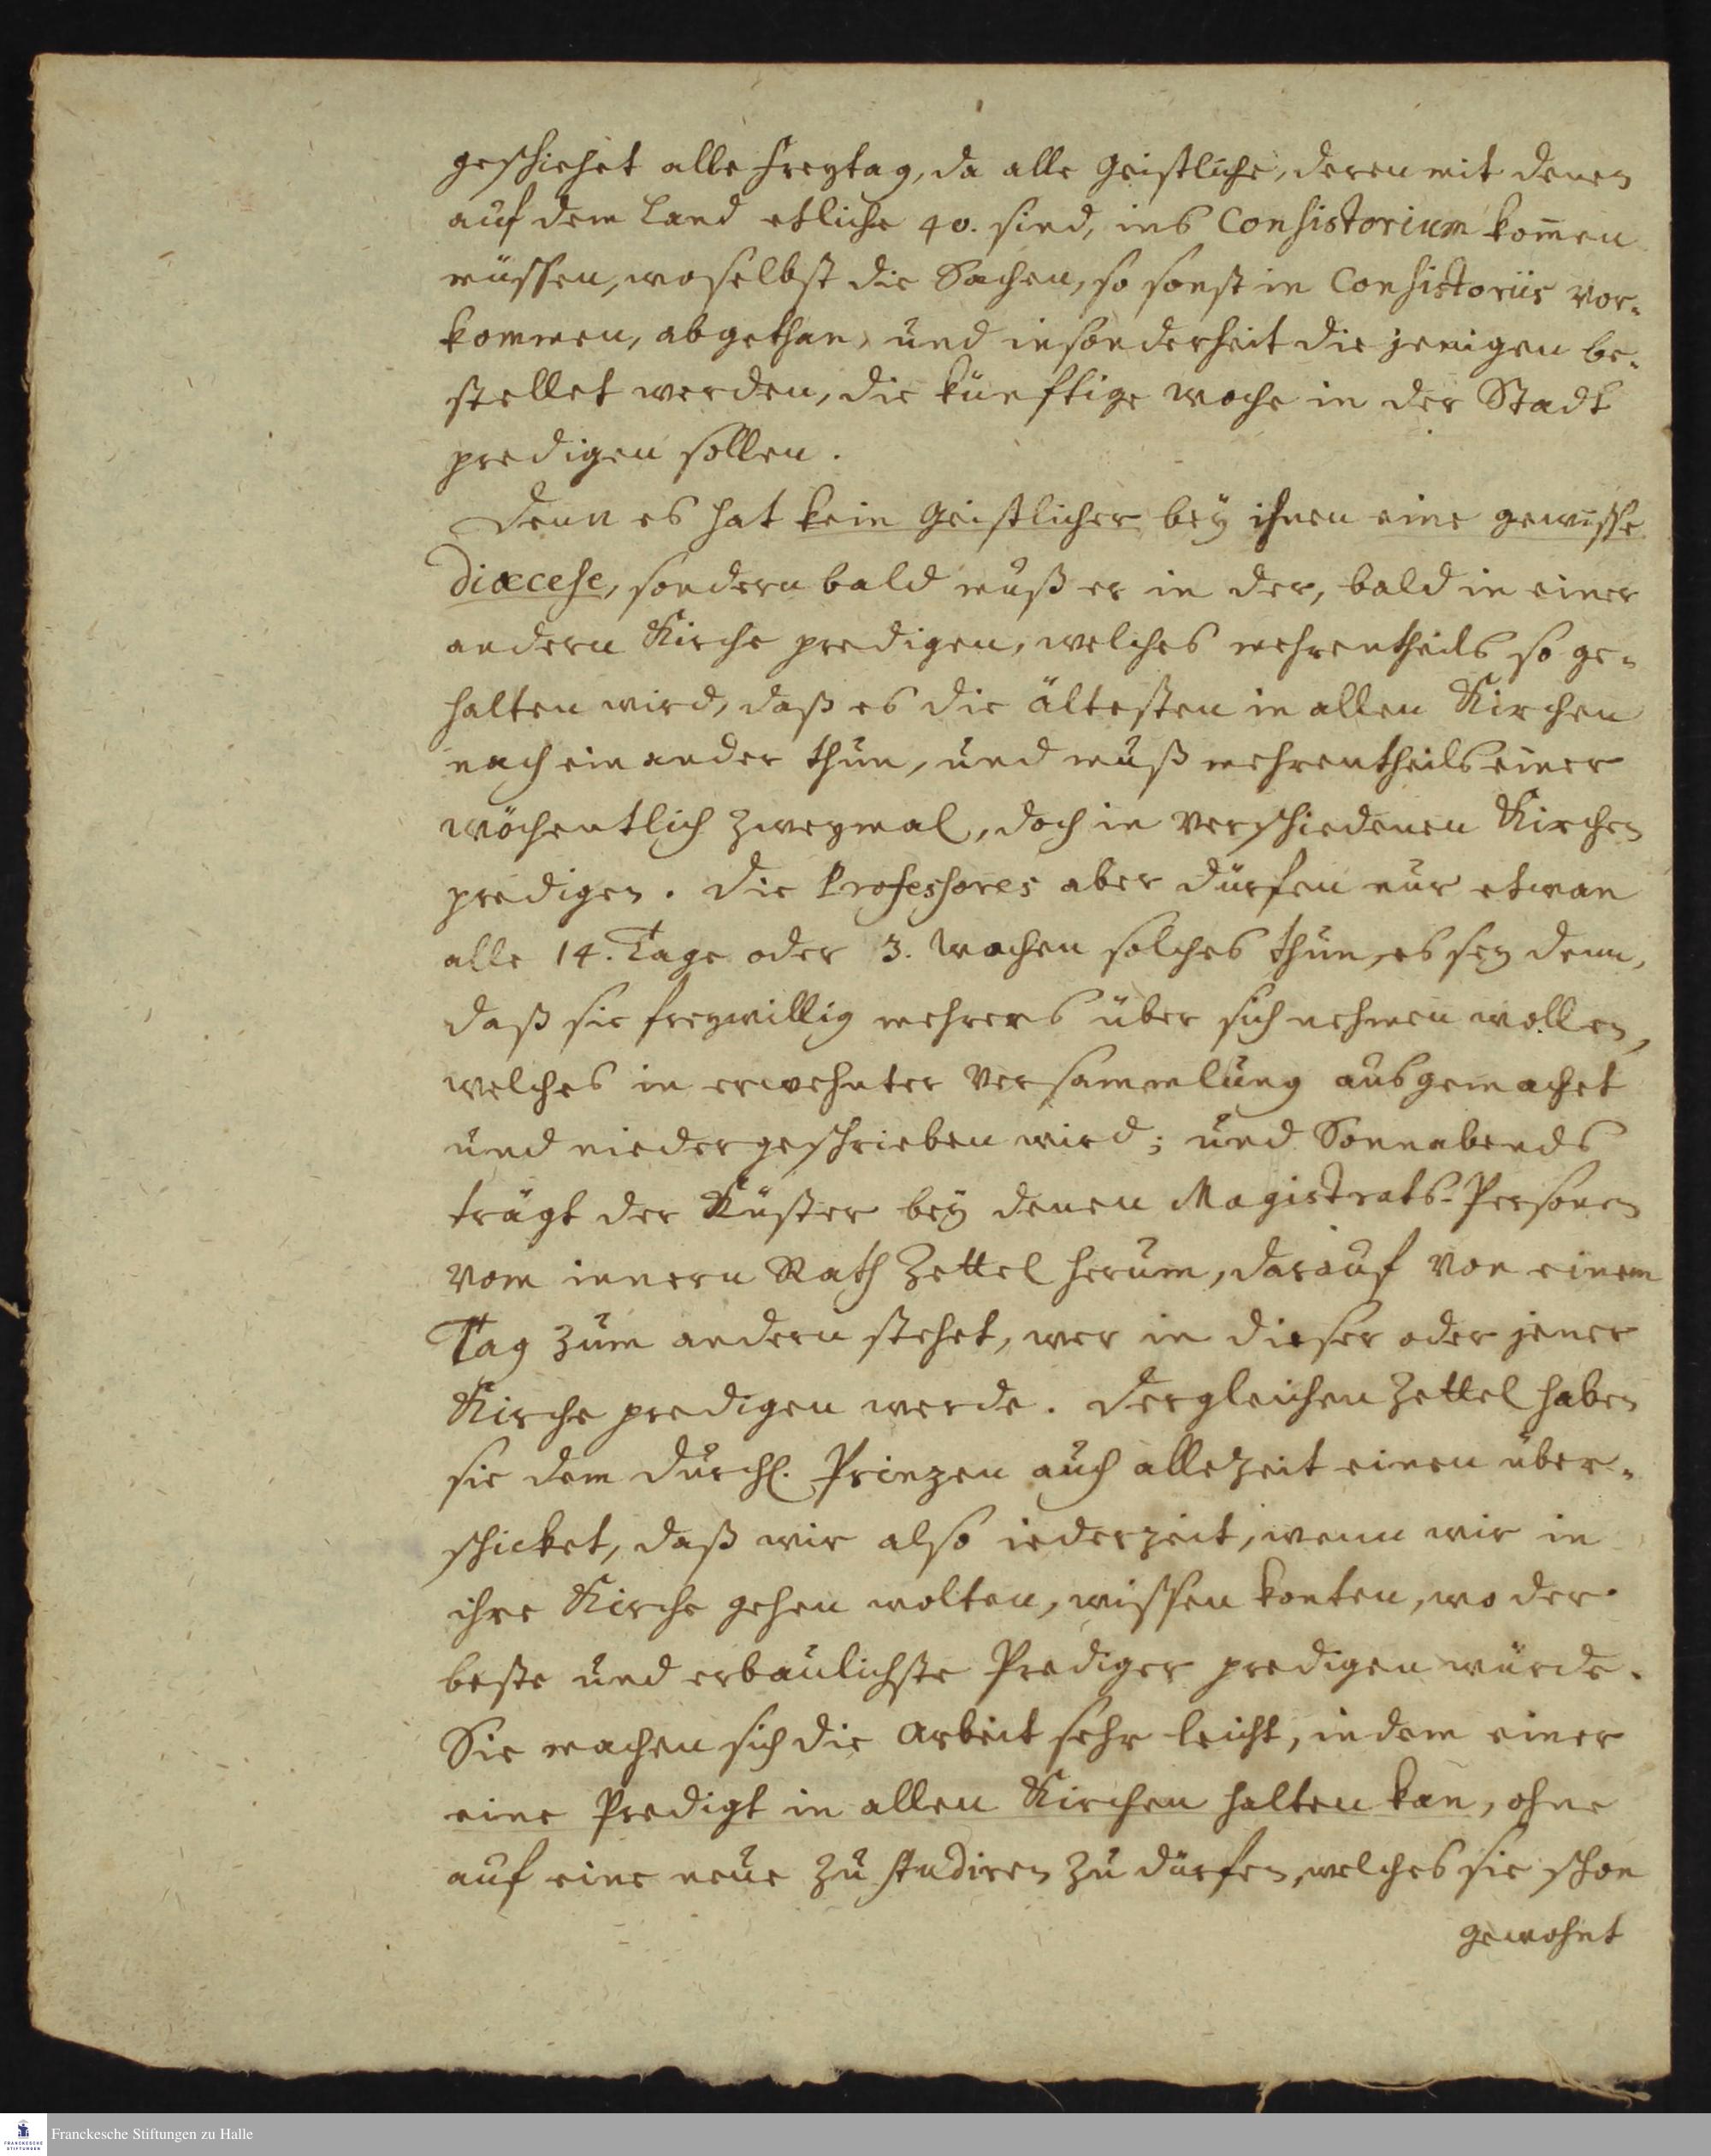 geschiehet alle Freytag, da alle Geistliche, deren mit denen
auf dem Land etliche 40. sind, ins Consistorium kom̅en
müssen, woselbst die Sachen, so sonst in Consistoriis vor-
kommen, abgethan, und insonderheit die jenigen be-
stellet werden, die künfftige Woche in der Stadt
predigen sollen.
Denn es hat kein Geistlicher bey ihnen eine gewisse
Dioecese, sondern bald muß er in der, bald in einer
andern Kirche predigen, welches mehrentheils so ge-
halten wird, daß es die ältesten in allen Kirchen
nach einander thun, und muß mehrentheils einer
wöchentlich zweymal, doch in verschiedenen Kirchen
predigen. Die Professores aber dürfen nur etwan
alle 14. Tage oder 3. Wochen solches thun, es sey denn,
daß sie freywillig mehrers über sich nehmen wollen,
welches in erwehnter Versammlung ausgemachet
und niedergeschrieben wird; und Sonnabends
trägt der Küster bey denen Magistrats-Personen
vom innern Rath Zettel herum, darauf von einem
Tag zum andern stehet, wer in dieser oder jener
Kirche predigen werde. Dergleichen Zettel haben
sie dem Durchl. Prinzen auch allezeit einen über-
schicket, daß wir also iederzeit, wenn wir in
ihre Kirche gehen wolten, wissen konten, wo der
beste und erbaulichste Prediger predigen würde.
Sie machen sich die Arbeit sehr leicht, indem einer
eine Predigt in allen Kirchen halten kan, ohne
auf eine neue zu studiren zu dürfen, welches sie schon
gewohnt
Franckesche Stiftungen zu Halle
FRANCKESCHE
STIFTUNGEN